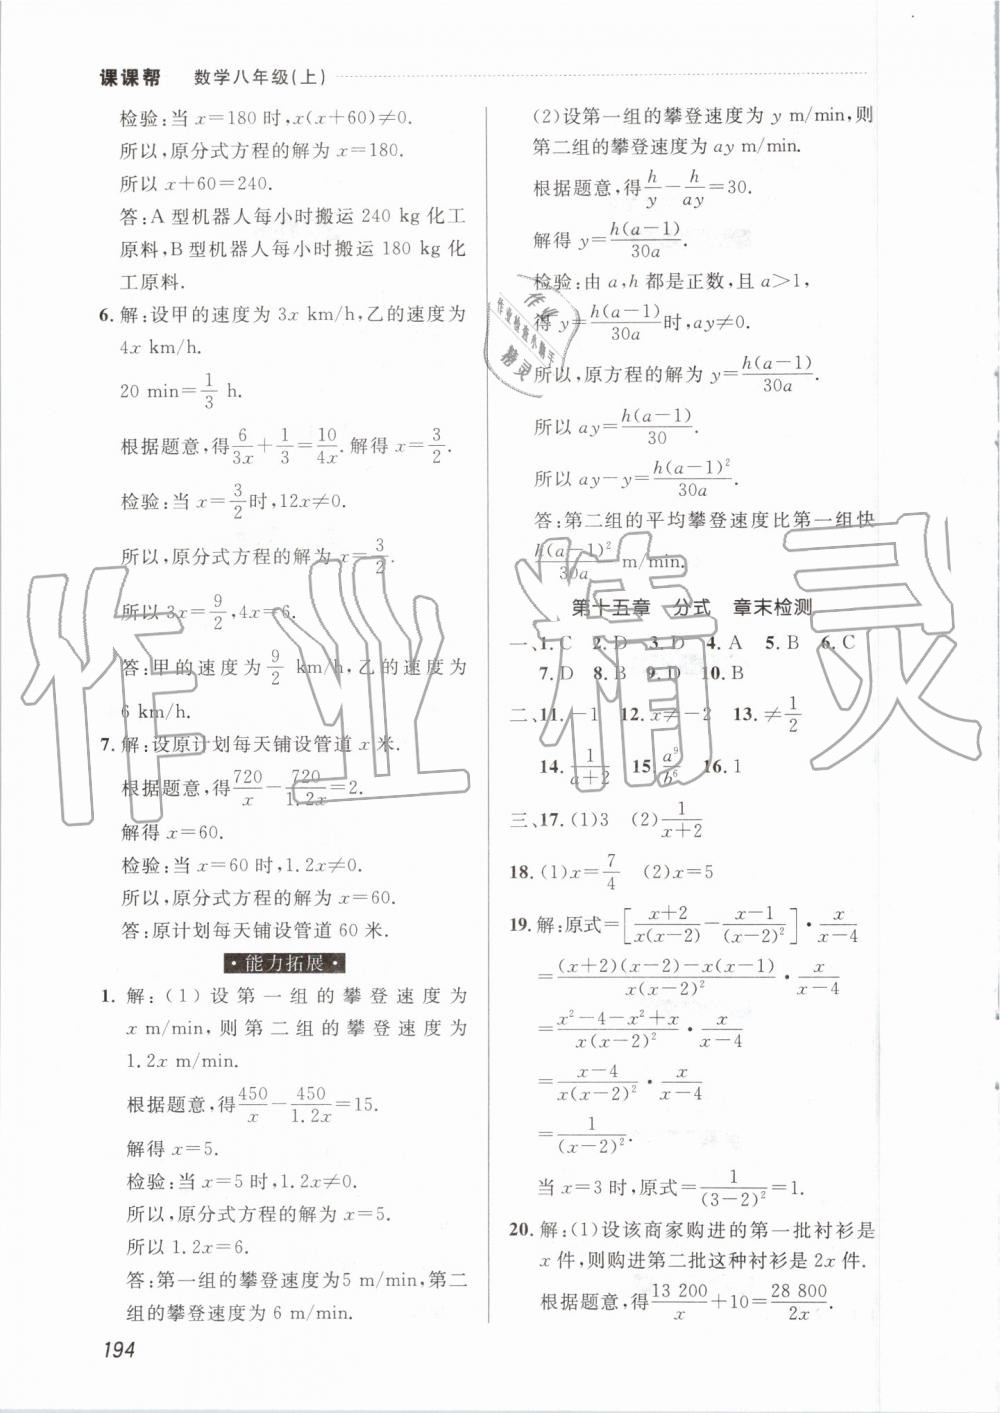 课课帮 数学八年级(上)
检验:当 x=180 时,x(x+60)≠0.
所以,原分式方程的解为 x=180.
所以 x+60=240.
答:A 型机器人每小时搬运 240 kg 化工
原料,B 型机器人每小时搬运 180 kg 化
工原料.
6. 解:设甲的速度为 3x km/h,乙的速度为
4x km/h.
20 min=1/3 h.
根据题意,得6/3x+1/3=10/4x.解得 x=3/2.
检验:当 x=3/2时,12x≠0.
所以,原分式方程的解为 x=3/2.
所以 3x=9/2,4x=6.
答:甲的速度为9/2 km/h,乙的速度为
6 km/h.
7. 解:设原计划每天铺设管道 x 米.
根据题意,得720/x-720/1.2x=2.
解得 x=60.
检验:当 x=60 时,1.2x≠0.
所以,原分式方程的解为 x=60.
答:原计划每天铺设管道 60 米.
·能力拓展·
1. 解:(1)设第一组的攀登速度为
x m/min,则第二组的攀登速度为
1.2x m/min.
根据题意,得450/x-450/1.2x=15.
解得 x=5.
检验:当 x=5 时,1.2x≠0.
所以,原分式方程的解为 x=5.
所以 1.2x=6.
答:第一组的攀登速度为5 m/min,第二
组的攀登速度为 6 m/min.
194
(2)设第一组的攀登速度为 y m/min,则
第二组的攀登速度为 ay m/min.
根据题意,得h/y-h/ay=30.
解得 y=h(a-1)/30a.
检验:由 a,h 都是正数,且 a>1,
得 y=h(a-1)/30a时,ay≠0.
所以,原方程的解为 y=h(a-1)/30a.
所以 ay=h(a-1)/30.
所以 ay-y=h(a-1)²/30a.
答:第二组的平均攀登速度比第一组快
h(a-1)²/30a m/min.
第十五章 分式 章末检测
一、1. C 2. D 3. D 4. A 5. B 6. C
7. D 8. B 9. D 10. B
二、11. -1 12. x≠-2 13. ≠1/2
14. 1/(a+2) 15. a⁹/b⁶ 16. 1
三、17. (1)3 (2)1/(x+2)
18. (1)x=7/4 (2)x=5
19. 解:原式=[(x+2)/x(x-2)-(x-1)/(x-2)²]·x/(x-4)
=((x+2)(x-2)-x(x-1))/x(x-2)²·x/(x-4)
=(x²-4-x²+x)/x(x-2)²·x/(x-4)
=(x-4)/x(x-2)²·x/(x-4)
=1/(x-2)².
当 x=3 时,原式=1/(3-2)²=1.
20. 解:(1)设该商家购进的第一批衬衫是
x 件,则购进第二批这种衬衫是 2x 件.
根据题意,得13 200/x+10=28 800/2x.
作业精灵
作业
作业检查小助手
精灵